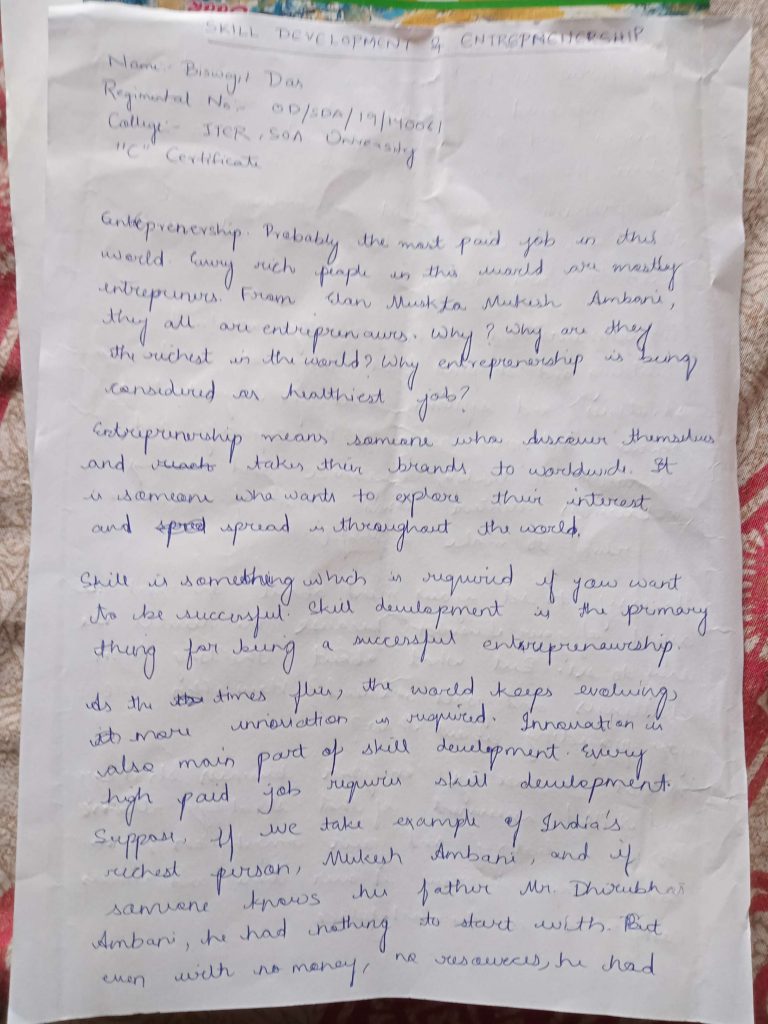 SKILL DEVELOPMENT & ENTREPRENERSHIP
Name:- Biswajit Das
Regimental No:- OD/SDA/19/140061
College:- ITER, SOA University
"C" Certificate
Entreprenership. Probably the most paid job in this
world. Every rich people in this world are mostly
entrepreners. From Elan Musk to Mukesh Ambani,
they all are entreprenaurs. Why? Why are they
the richest in the world? Why entreprenership is being
considered as healthiest job?
Entreprenership means someone who discover themselves
and takes their brands to worldwide. It
is someone who wants to explore their interest
and spread is throughout the world.
Skill is something which is required if you want
to be successful. Skill development is the primary
thing for being a successful entrepreneurship.
As the times flies, the world keeps evolving,
more innovation is required. Innovation is
also main part of skill development. Every
high paid job requires skill development.
Suppose, If we take example of India's
richest person, Mukesh Ambani, and if
someone knows his father Mr. Dhirubhai
Ambani, he had nothing to start with. But
even with no money, no resources, he had